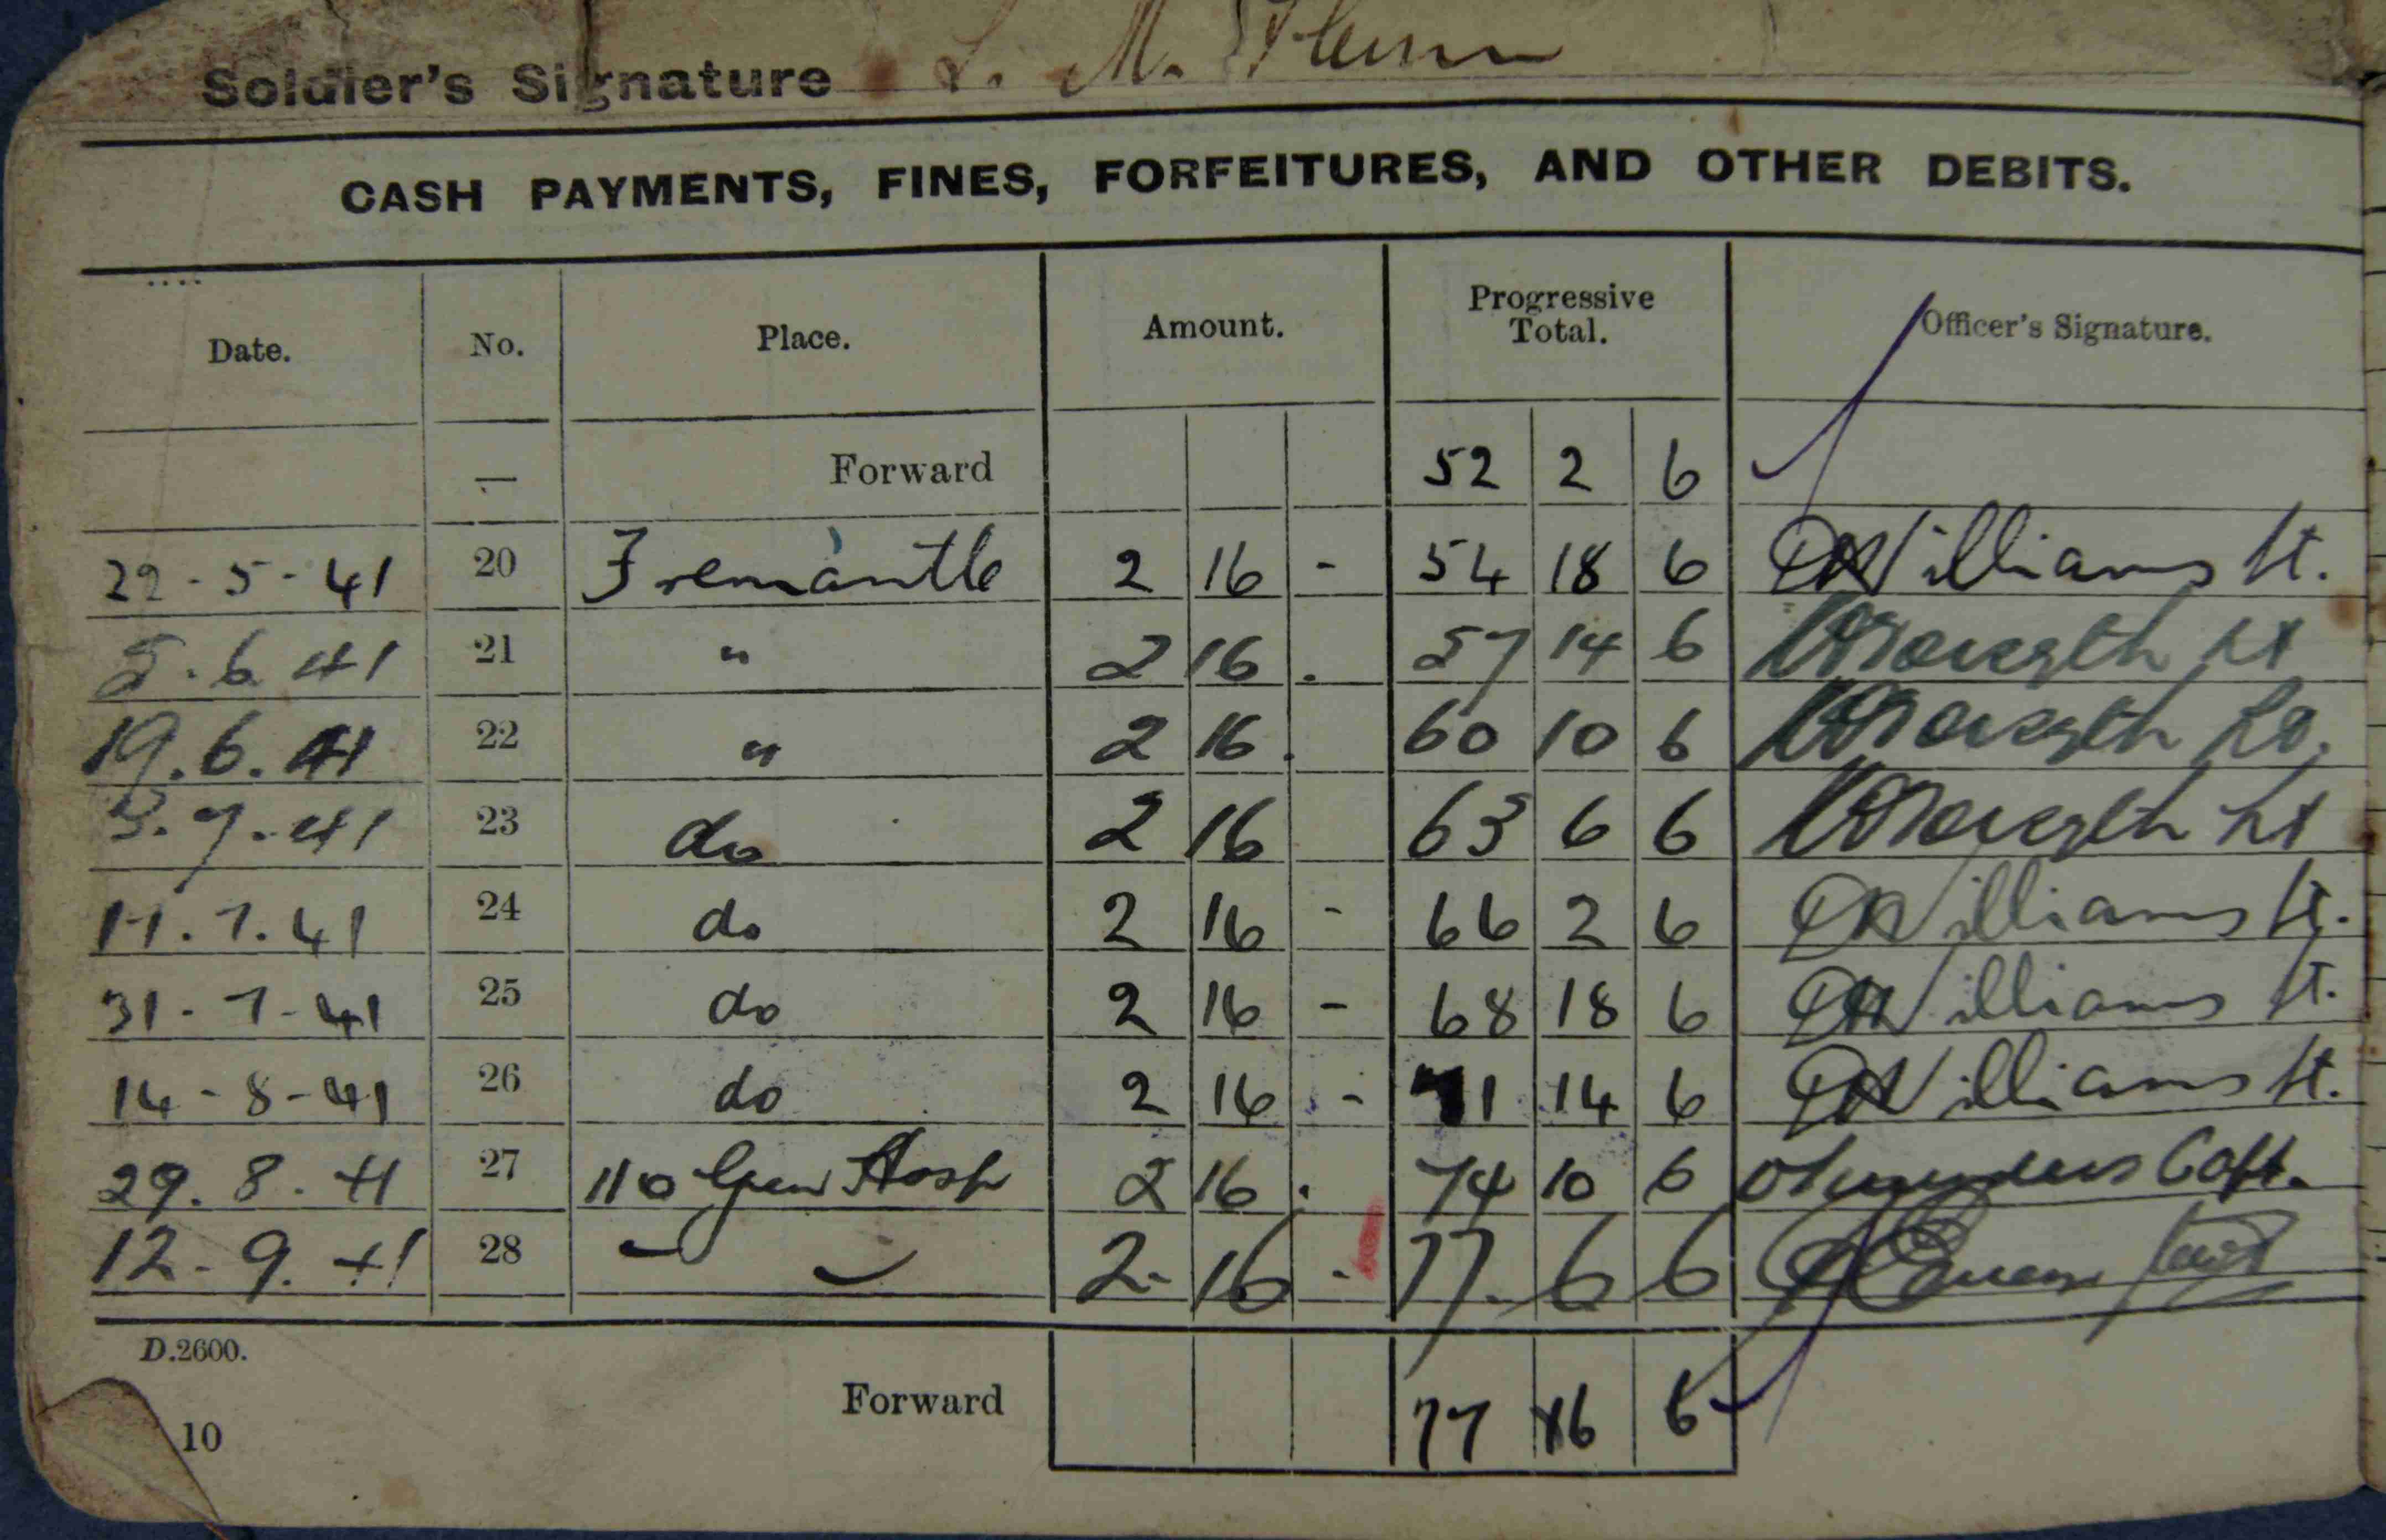 Soldier's Signature L. M.
CASH PAYMENTS, FINES, FORFEITURES, AND OTHER DEBITS.
Date. No. Place. Amount. Progressive Total. Officer's Signature.
— Forward 52 2 6
22-5-41 20 Fremantle 2 16 - 54 18 6 Williams Lt.
5.6.41 21 " 2 16 . 57 14 6 Lt
19.6.41 22 " 2 16 . 60 10 6
3.7.41 23 do 2 16 63 6 6 Lt
24 do 2 16 - 66 2 6 Williams Lt.
31-7-41 25 do 2 16 - 68 18 6 Williams Lt.
14-8-41 26 do 2 16 - 71 14 6 Williams Lt.
29.8.41 27 110 Gen Hosp 2 16 . 74 10 6 Capt.
12-9.41 28 2-16 - 77. 6 6
D.2600.
Forward 77 6 6
10